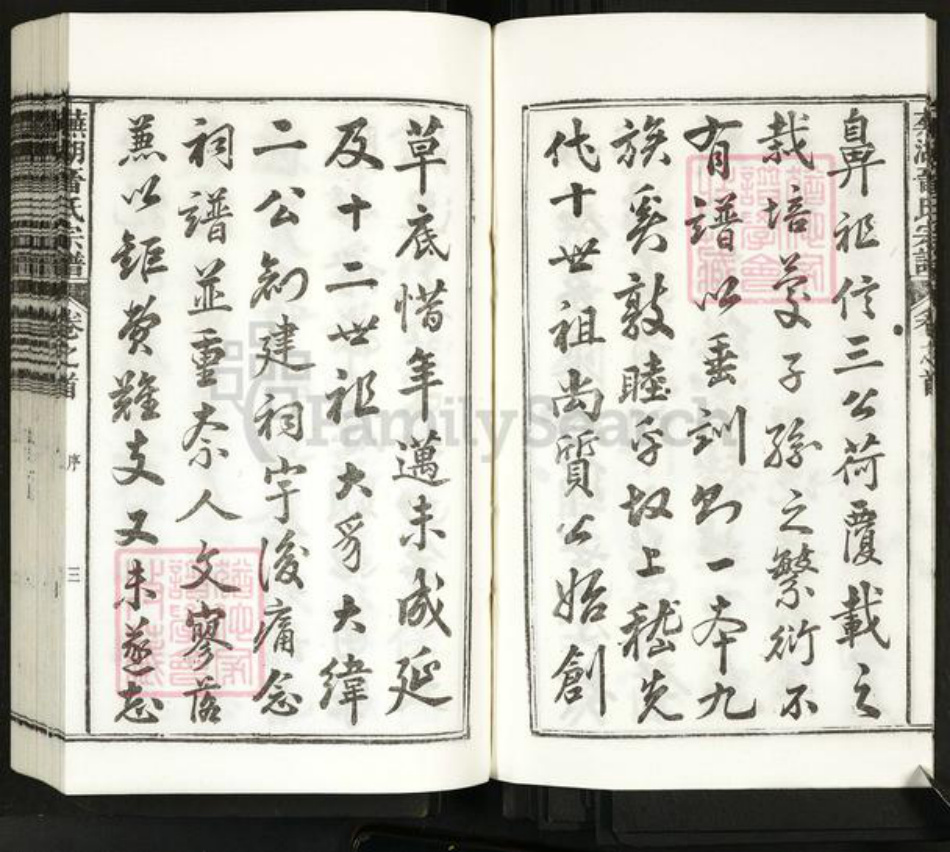 鼻祖信三公荷覆載之
栽培蔓子孫之繁衍不
有譜以垂訓一本九
族奚敦睦乎故上稽先
代十世祖尚質公始創
草底惜年邁未成延
及十二世祖大 大緯
二公創建祠宇後痛念
祠譜並重奈人文寥落
兼以鉅費難支又未遂志
蕪湖 氏宗譜
卷之首
序
三
FamilySearch